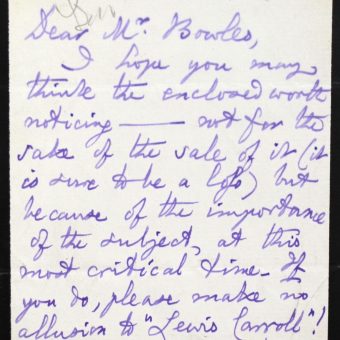 Dear Mr. Bowles,
I hope you may
think the enclosed worth
noticing — not for the
sake of the sale of it (it
is sure to be a loss) but
because of the importance
of the subject, at this
most critical time. If
you do, please make no
allusion to "Lewis Carroll"!